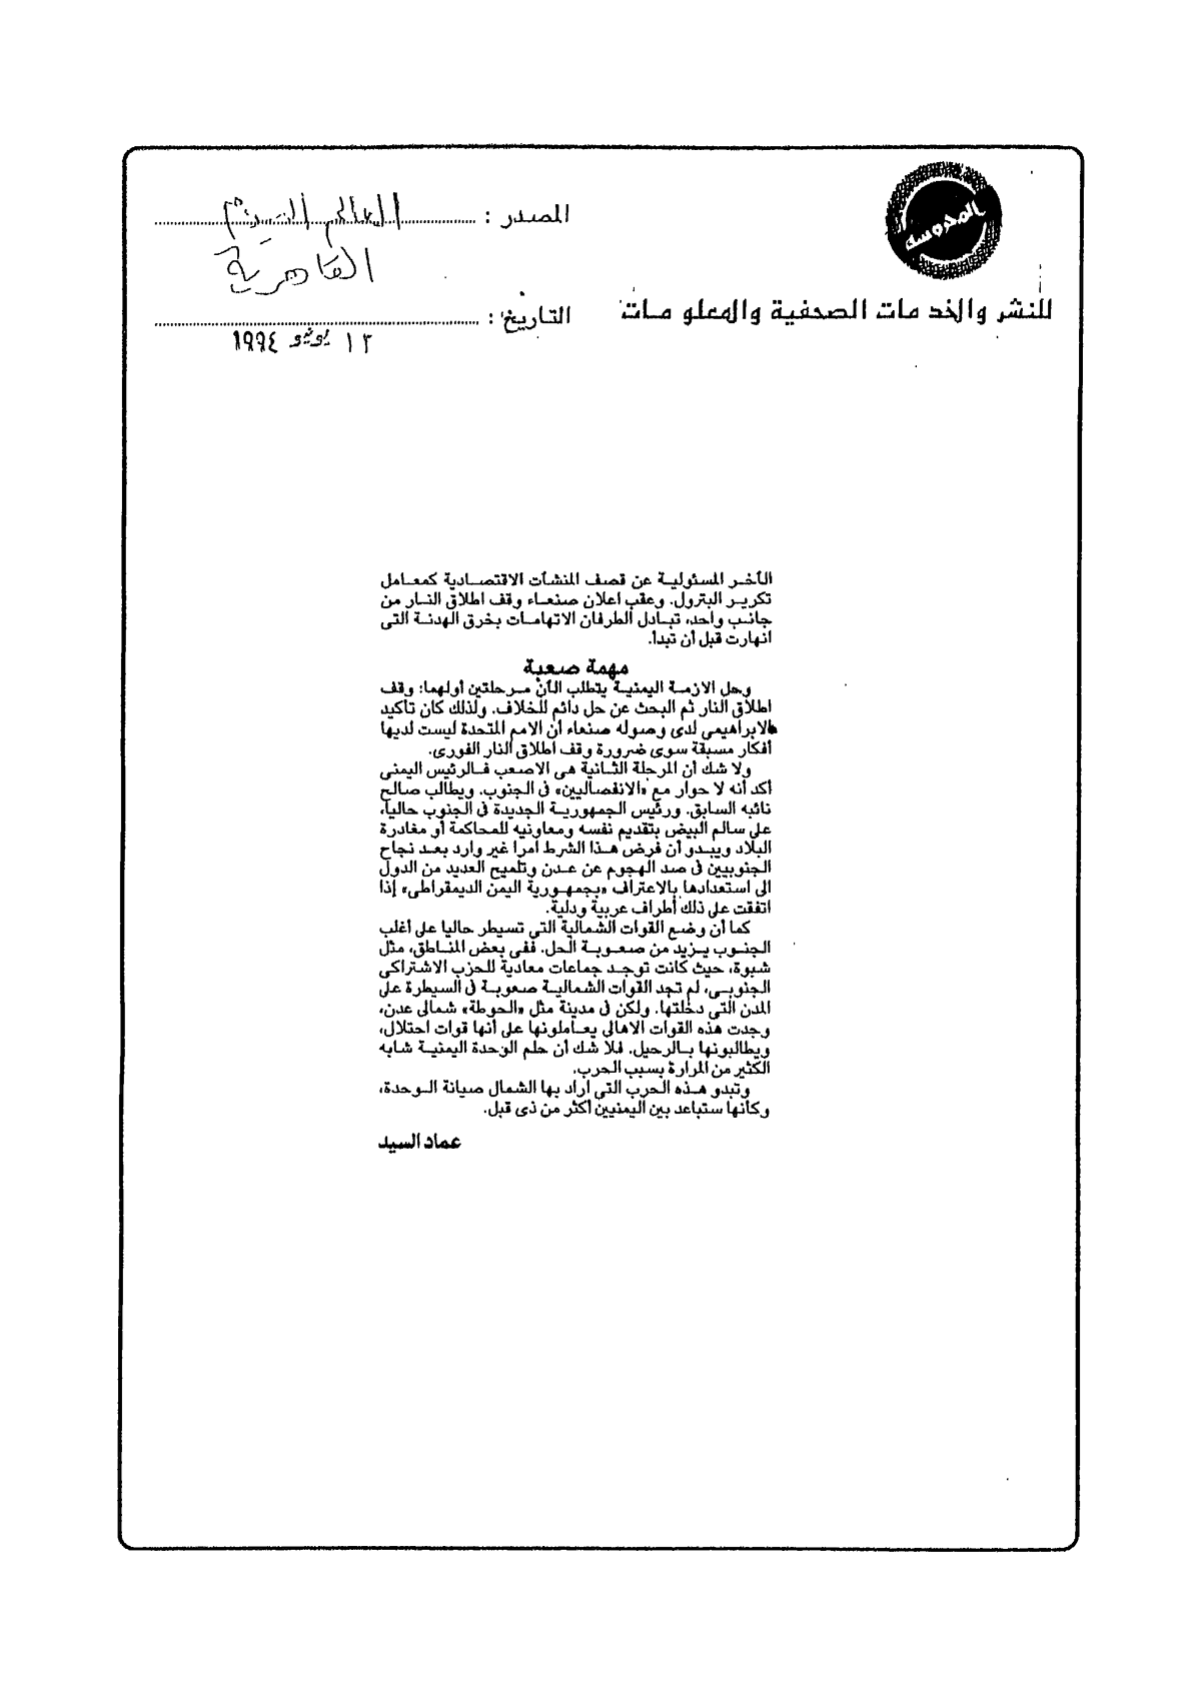 المحروسة
المصدر : العالم اليوم
القاهرية
للنشر والخدمات الصحفية والمعلومات
التاريخ :
١٢ يونيو ١٩٩٤
الآخر المسئولية عن قصف المنشآت الاقتصادية كمعامل
تكرير البترول. وعقب اعلان صنعاء وقف اطلاق النار من
جانب واحد، تبادل الطرفان الاتهامات بخرق الهدنة التى
انهارت قبل أن تبدأ.
مهمة صعبة
وحل الازمة اليمنية يتطلب الآن مرحلتين أولهما: وقف
اطلاق النار ثم البحث عن حل دائم للخلاف. ولذلك كان تأكيد
الابراهيمى لدى وصوله صنعاء أن الامم المتحدة ليست لديها
أفكار مسبقة سوى ضرورة وقف اطلاق النار الفورى.
ولا شك أن المرحلة الثانية هى الاصعب فالرئيس اليمنى
أكد أنه لا حوار مع «الانفصاليين» فى الجنوب. ويطالب صالح
نائبه السابق. ورئيس الجمهورية الجديدة فى الجنوب حاليا،
على سالم البيض بتقديم نفسه ومعاونيه للمحاكمة أو مغادرة
البلاد ويبدو أن فرض هذا الشرط امرا غير وارد بعد نجاح
الجنوبيين فى صد الهجوم عن عدن وتلميح العديد من الدول
الى استعدادها بالاعتراف «بجمهورية اليمن الديمقراطى» إذا
اتفقت على ذلك أطراف عربية ودلية.
كما أن وضع القوات الشمالية التى تسيطر حاليا على أغلب
الجنوب يزيد من صعوبة الحل. ففى بعض المناطق، مثل
شبوة، حيث كانت توجد جماعات معادية للحزب الاشتراكى
الجنوبى، لم تجد القوات الشمالية صعوبة فى السيطرة على
المدن التى دخلتها. ولكن فى مدينة مثل «الحوطة» شمالى عدن،
وجدت هذه القوات الاهالى يعاملونها على أنها قوات احتلال،
ويطالبونها بالرحيل. فلا شك أن حلم الوحدة اليمنية شابه
الكثير من المرارة بسبب الحرب.
وتبدو هذه الحرب التى اراد بها الشمال صيانة الوحدة،
وكأنها ستباعد بين اليمنيين أكثر من ذى قبل.
عماد السيد